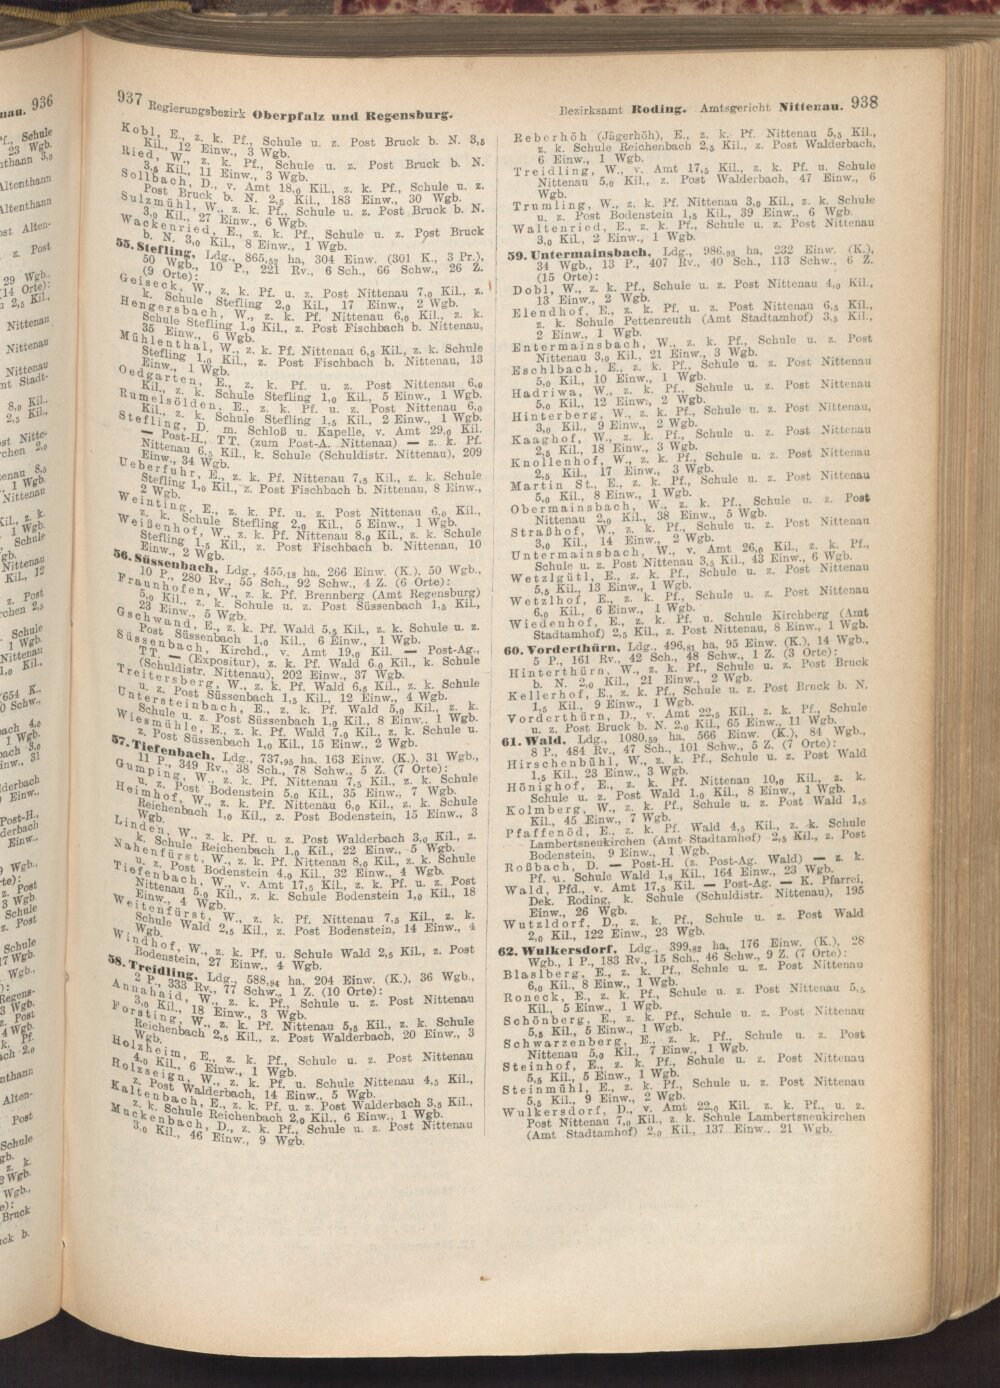 937 Regierungsbezirk Oberpfalz und Regensburg.
Kobl, E., z. k. Pf., Schule u. z. Post Bruck b. N. 3,5
Kil., 12 Einw., 3 Wgb.
Ried, W., z. k. Pf., Schule u. z. Post Bruck b. N.
3,5 Kil., 11 Einw., 3 Wgb.
Sollbach, D., v. Amt 18,0 Kil., z. k. Pf., Schule u. z.
Post Bruck b. N. 2,5 Kil., 183 Einw., 30 Wgb.
Sulzmühl, W., z. k. Pf., Schule u. z. Post Bruck b. N.
3,0 Kil., 27 Einw., 6 Wgb.
Wackenried, E., z. k. Pf., Schule u. z. Post Bruck
b. N. 3,0 Kil., 8 Einw., 1 Wgb.
55. Stefling, Ldg., 865,52 ha, 304 Einw. (301 K., 3 Pr.),
50 Wgb., 10 P., 221 Rv., 6 Sch., 66 Schw., 26 Z.
(9 Orte):
Geiseck, W., z. k. Pf. u. z. Post Nittenau 7,0 Kil., z.
k. Schule Stefling 2,0 Kil., 17 Einw., 2 Wgb.
Hengersbach, W., z. k. Pf. Nittenau 6,0 Kil., z. k.
Schule Stefling 1,0 Kil., z. Post Fischbach b. Nittenau,
35 Einw., 6 Wgb.
Mühlenthal, W., z. k. Pf. Nittenau 6,5 Kil., z. k. Schule
Stefling 1,0 Kil., z. Post Fischbach b. Nittenau, 13
Einw., 1 Wgb.
Oedgarten, E., z. k. Pf. u. z. Post Nittenau 6,0
Kil., z. k. Schule Stefling 1,0 Kil., 5 Einw., 1 Wgb.
Rumelsölden, E., z. k. Pf. u. z. Post Nittenau 6,0
Kil., z. k. Schule Stefling 1,5 Kil., 2 Einw., 1 Wgb.
Stefling, D. m. Schloß u. Kapelle, v. Amt 29,0 Kil.
— Post-H., TT. (zum Post-A. Nittenau) — z. k. Pf.
Nittenau 6,5 Kil., k. Schule (Schuldistr. Nittenau), 209
Einw., 34 Wgb.
Ueberfuhr, E., z. k. Pf. Nittenau 7,5 Kil., z. k. Schule
Stefling 1,0 Kil., z. Post Fischbach b. Nittenau, 8 Einw.,
2 Wgb.
Weinting, E., z. k. Pf. u. z. Post Nittenau 6,0 Kil.,
z. k. Schule Stefling 2,0 Kil., 5 Einw., 1 Wgb.
Weißenhof, W., z. k. Pf. Nittenau 8,0 Kil., z. k. Schule
Stefling 1,5 Kil., z. Post Fischbach b. Nittenau, 10
Einw., 2 Wgb.
56. Süssenbach, Ldg., 455,18 ha, 266 Einw. (K.), 50 Wgb.,
10 P., 280 Rv., 55 Sch., 92 Schw., 4 Z. (6 Orte):
Fraunhofen, W., z. k. Pf. Brennberg (Amt Regensburg)
5,0 Kil., z. k. Schule u. z. Post Süssenbach 1,5 Kil.,
23 Einw., 5 Wgb.
Gschwand, E., z. k. Pf. Wald 5,5 Kil., z. k. Schule u. z.
Post Süssenbach 1,0 Kil., 6 Einw., 1 Wgb.
Süssenbach, Kirchd., v. Amt 19,0 Kil. — Post-Ag.,
TT. — (Expositur), z. k. Pf. Wald 6,0 Kil., k. Schule
(Schuldistr. Nittenau), 202 Einw., 37 Wgb.
Treitersberg, W., z. k. Pf. Wald 6,5 Kil., z. k. Schule
u. z. Post Süssenbach 1,5 Kil., 12 Einw., 4 Wgb.
Untersteinbach, E., z. k. Pf. Wald 5,0 Kil., z. k.
Schule u. z. Post Süssenbach 1,0 Kil., 8 Einw., 1 Wgb.
Wiesmühle, E., z. k. Pf. Wald 7,0 Kil., z. k. Schule u.
z. Post Süssenbach 1,0 Kil., 15 Einw., 2 Wgb.
57. Tiefenbach, Ldg., 737,95 ha, 163 Einw. (K.), 31 Wgb.,
11 P., 349 Rv., 38 Sch., 78 Schw., 5 Z. (7 Orte):
Gumping, W., z. k. Pf. Nittenau 7,5 Kil., z. k. Schule
u. z. Post Bodenstein 5,0 Kil., 35 Einw., 7 Wgb.
Heimhof, W., z. k. Pf. Nittenau 6,0 Kil., z. k. Schule
Reichenbach 1,0 Kil., z. Post Bodenstein, 15 Einw., 3
Wgb.
Linden, W., z. k. Pf. u. z. Post Walderbach 3,0 Kil., z.
k. Schule Reichenbach 1,0 Kil., 22 Einw., 5 Wgb.
Nahenfürst, W., z. k. Pf. Nittenau 8,0 Kil., z. k. Schule
u. z. Post Bodenstein 4,0 Kil., 32 Einw., 4 Wgb.
Tiefenbach, W., v. Amt 17,5 Kil., z. k. Pf. u. z. Post
Nittenau 5,0 Kil., z. k. Schule Bodenstein 1,0 Kil., 18
Einw., 4 Wgb.
Weitenfürst, W., z. k. Pf. Nittenau 7,5 Kil., z. k.
Schule Wald 2,5 Kil., z. Post Bodenstein, 14 Einw., 4
Wgb.
Windhof, W., z. k. Pf. u. Schule Wald 2,5 Kil., z. Post
Bodenstein, 27 Einw., 4 Wgb.
58. Treidling, Ldg., 588,94 ha, 204 Einw. (K.), 36 Wgb.,
2 P., 333 Rv., 77 Schw., 1 Z. (10 Orte):
Annahaid, W., z. k. Pf., Schule u. z. Post Nittenau
3,0 Kil., 18 Einw., 3 Wgb.
Forsting, W., z. k. Pf. Nittenau 5,5 Kil., z. k. Schule
Reichenbach 2,5 Kil., z. Post Walderbach, 20 Einw., 3
Wgb.
Holzheim, E., z. k. Pf., Schule u. z. Post Nittenau
4,0 Kil., 6 Einw., 1 Wgb.
Holzseign, W., z. k. Pf. u. Schule Nittenau 4,5 Kil.,
z. Post Walderbach, 14 Einw., 5 Wgb.
Kaltenbach, E., z. k. Pf. u. z. Post Walderbach 3,5 Kil.,
z. k. Schule Reichenbach 2,0 Kil., 6 Einw., 1 Wgb.
Muckenbach, D., z. k. Pf., Schule u. z. Post Nittenau
3,0 Kil., 46 Einw., 9 Wgb.
Bezirksamt Roding. Amtsgericht Nittenau. 938
Reberhöh (Jägerhöh), E., z. k. Pf. Nittenau 5,5 Kil.,
z. k. Schule Reichenbach 2,5 Kil., z. Post Walderbach,
6 Einw., 1 Wgb.
Treidling, W., v. Amt 17,5 Kil., z. k. Pf. u. Schule
Nittenau 5,0 Kil., z. Post Walderbach, 47 Einw., 6
Wgb.
Trumling, W., z. k. Pf. Nittenau 3,0 Kil., z. k. Schule
u. z. Post Bodenstein 1,5 Kil., 39 Einw., 6 Wgb.
Waltenried, E., z. k. Pf., Schule u. z. Post Nittenau
3,0 Kil., 2 Einw., 1 Wgb.
59. Untermainsbach, Ldg., 986,93 ha, 232 Einw. (K.),
34 Wgb., 13 P., 407 Rv., 40 Sch., 113 Schw., 6 Z.
(15 Orte):
Dobl, W., z. k. Pf., Schule u. z. Post Nittenau 4,0 Kil.,
13 Einw., 2 Wgb.
Elendhof, E., z. k. Pf. u. z. Post Nittenau 6,5 Kil.,
z. k. Schule Pettenreuth (Amt Stadtamhof) 3,5 Kil.,
2 Einw., 1 Wgb.
Entermainsbach, W., z. k. Pf., Schule u. z. Post
Nittenau 3,0 Kil., 21 Einw., 3 Wgb.
Eschlbach, E., z. k. Pf., Schule u. z. Post Nittenau
5,0 Kil., 10 Einw., 1 Wgb.
Hadriwa, W., z. k. Pf., Schule u. z. Post Nittenau
5,0 Kil., 12 Einw., 2 Wgb.
Hinterberg, W., z. k. Pf., Schule u. z. Post Nittenau,
3,0 Kil., 9 Einw., 2 Wgb.
Kaaghof, W., z. k. Pf., Schule u. z. Post Nittenau
2,5 Kil., 18 Einw., 3 Wgb.
Knollenhof, W., z. k. Pf., Schule u. z. Post Nittenau
2,5 Kil., 17 Einw., 3 Wgb.
Martin St., E., z. k. Pf., Schule u. z. Post Nittenau
5,0 Kil., 8 Einw., 1 Wgb.
Obermainsbach, W., z. k. Pf., Schule u. z. Post
Nittenau 2,0 Kil., 38 Einw., 5 Wgb.
Straßhof, W., z. k. Pf., Schule u. z. Post Nittenau
3,0 Kil., 14 Einw., 2 Wgb.
Untermainsbach, W., v. Amt 26,0 Kil., z. k. Pf.,
Schule u. z. Post Nittenau 3,5 Kil., 43 Einw., 6 Wgb.
Wetzlgütl, E., z. k. Pf., Schule u. z. Post Nittenau
5,5 Kil., 13 Einw., 1 Wgb.
Wetzlhof, E., z. k. Pf., Schule u. z. Post Nittenau
6,0 Kil., 6 Einw., 1 Wgb.
Wiedenhof, E., z. k. Pf. u. Schule Kirchberg (Amt
Stadtamhof) 2,5 Kil., z. Post Nittenau, 8 Einw., 1 Wgb.
60. Vorderthürn, Ldg., 496,81 ha, 95 Einw. (K.), 14 Wgb.,
5 P., 161 Rv., 42 Sch., 48 Schw., 1 Z. (3 Orte):
Hinterthürn, W., z. k. Pf., Schule u. z. Post Bruck
b. N. 2,0 Kil., 21 Einw., 2 Wgb.
Kellerhof, E., z. k. Pf., Schule u. z. Post Bruck b. N.
1,5 Kil., 9 Einw., 1 Wgb.
Vorderthürn, D., v. Amt 22,5 Kil., z. k. Pf., Schule
u. z. Post Bruck b. N. 2,0 Kil., 65 Einw., 11 Wgb.
61. Wald, Ldg., 1080,59 ha, 566 Einw. (K.), 84 Wgb.,
8 P., 484 Rv., 47 Sch., 101 Schw., 5 Z. (7 Orte):
Hirschenbühl, W., z. k. Pf., Schule u. z. Post Wald
1,5 Kil., 23 Einw., 3 Wgb.
Hönighof, E., z. k. Pf. Nittenau 10,0 Kil., z. k.
Schule u. z. Post Wald 1,0 Kil., 8 Einw., 1 Wgb.
Kolmberg, W., z. k. Pf., Schule u. z. Post Wald 1,5
Kil., 45 Einw., 7 Wgb.
Pfaffenöd, E., z. k. Pf. Wald 4,5 Kil., z. k. Schule
Lambertsneukirchen (Amt Stadtamhof) 2,5 Kil., z. Post
Bodenstein, 9 Einw., 1 Wgb.
Roßbach, D. — Post-H. (z. Post-Ag. Wald) — z. k.
Pf. u. Schule Wald 1,8 Kil., 164 Einw., 23 Wgb.
Wald, Pfd., v. Amt 17,5 Kil. — Post-Ag. — K. Pfarrei,
Dek. Roding, k. Schule (Schuldistr. Nittenau), 195
Einw., 26 Wgb.
Wutzldorf, D., z. k. Pf., Schule u. z. Post Wald
2,0 Kil., 122 Einw., 23 Wgb.
62. Wulkersdorf, Ldg., 399,82 ha, 176 Einw. (K.), 28
Wgb., 1 P., 183 Rv., 15 Sch., 46 Schw., 9 Z. (7 Orte):
Blaslberg, E., z. k. Pf., Schule u. z. Post Nittenau
6,0 Kil., 8 Einw., 1 Wgb.
Roneck, E., z. k. Pf., Schule u. z. Post Nittenau 5,5
Kil., 5 Einw., 1 Wgb.
Schönberg, E., z. k. Pf., Schule u. z. Post Nittenau
5,5 Kil., 5 Einw., 1 Wgb.
Schwarzenberg, E., z. k. Pf., Schule u. z. Post
Nittenau 5,0 Kil., 7 Einw., 1 Wgb.
Steinhof, E., z. k. Pf., Schule u. z. Post Nittenau
5,5 Kil., 5 Einw., 1 Wgb.
Steinmühl, E., z. k. Pf., Schule u. z. Post Nittenau
5,5 Kil., 9 Einw., 2 Wgb.
Wulkersdorf, D., v. Amt 22,0 Kil. z. k. Pf., u. z.
Post Nittenau 7,0 Kil., z. k. Schule Lambertsneukirchen
(Amt Stadtamhof) 2,0 Kil., 137 Einw., 21 Wgb.